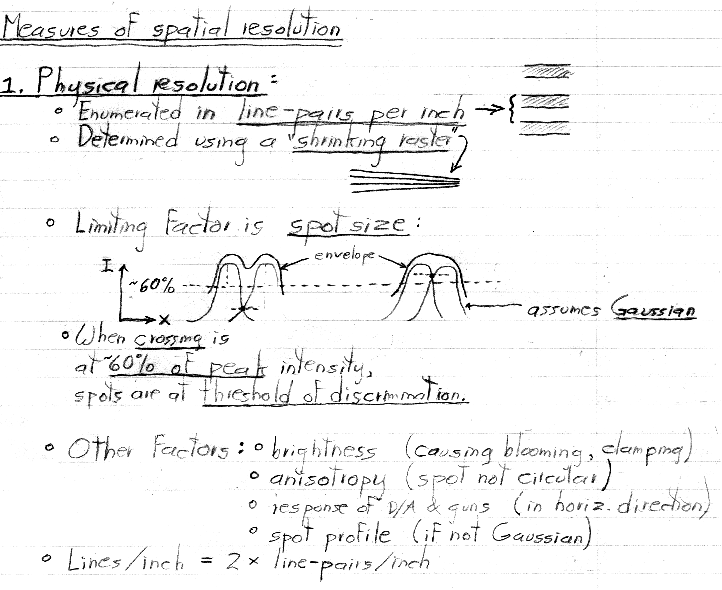 Measures of spatial resolution
1. Physical resolution:
• Enumerated in line-pairs per inch → {
• Determined using a "shrinking raster"
• Limiting Factor is spot size:
envelope
I
~60%
X
assumes Gaussian
• When crossing is
at ~60% of peak intensity,
spots are at threshold of discrimination.
• Other Factors: • brightness (causing blooming, clamping)
• anisotropy (spot not circular)
• response of D/A & guns (in horiz. direction)
• spot profile (if not Gaussian)
• Lines/inch = 2 × line-pairs/inch